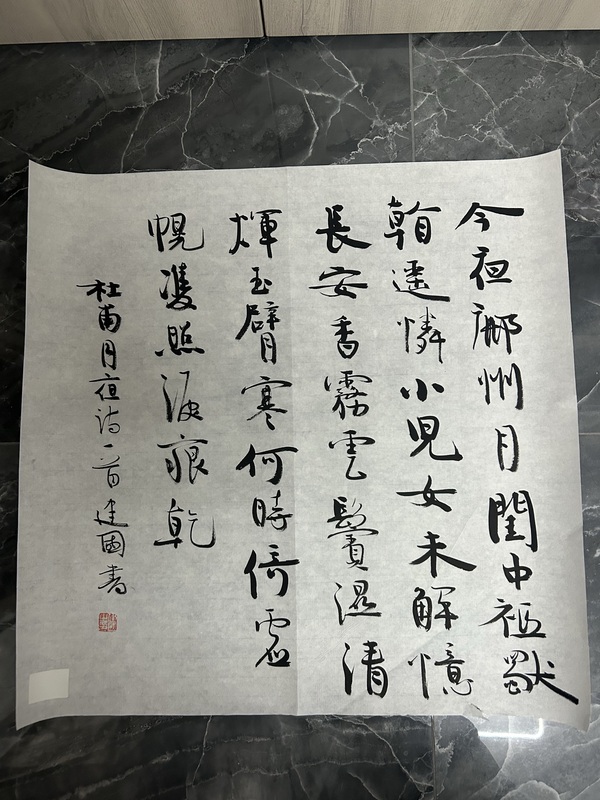 今夜鄜州月閨中祗獨
看遥憐小兒女未解憶
長安香霧雲鬢濕清
輝玉臂寒何時倚虛
幌雙照淚痕乾
杜甫月夜詩一首建國書